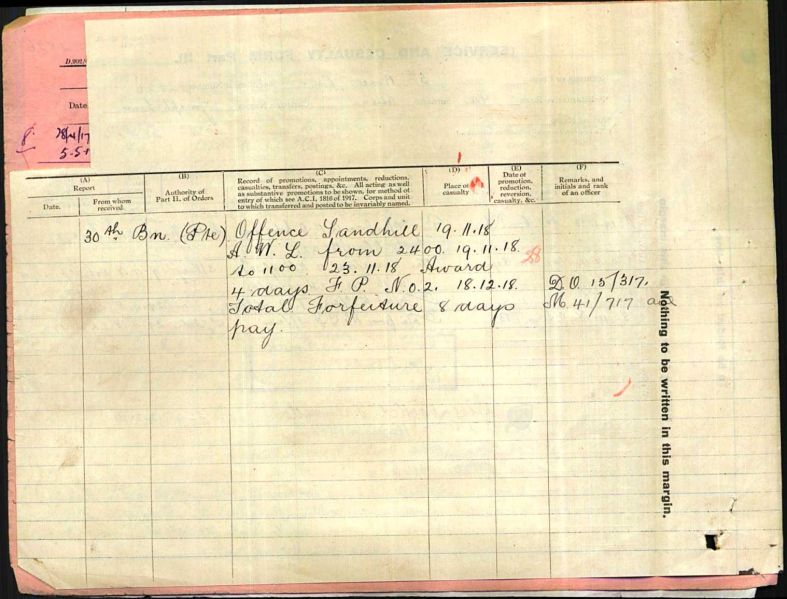 D.901/
Date
8.
28/4/17
5.5.1
(A)
Report
Date.
From whom
received.
(B)
Authority of
Part II. of Orders
(C)
Record of promotions, appointments, reductions,
casualties, transfers, postings, &c. All acting as well
as substantive promotions to be shown, for method of
entry of which see A.C.I. 1816 of 1917. Corps and unit
to which transferred and posted to be invariably named.
(D)
Place of
casualty
(E)
Date of
promotion,
reduction,
reversion,
casualty, &c.
(F)
Remarks, and
initials and rank
of an officer
30th Bn. (Pte) Offence Sandhill 19.11.18
A. W. L. from 2400. 19.11.18.
to 1100 23.11.18 Award
4 days F. P. N.o.2. 18.12.18. D.O. 15/317.
Total Forfeiture 8 days M. 41/717
pay.
28
Nothing to be written in this margin.